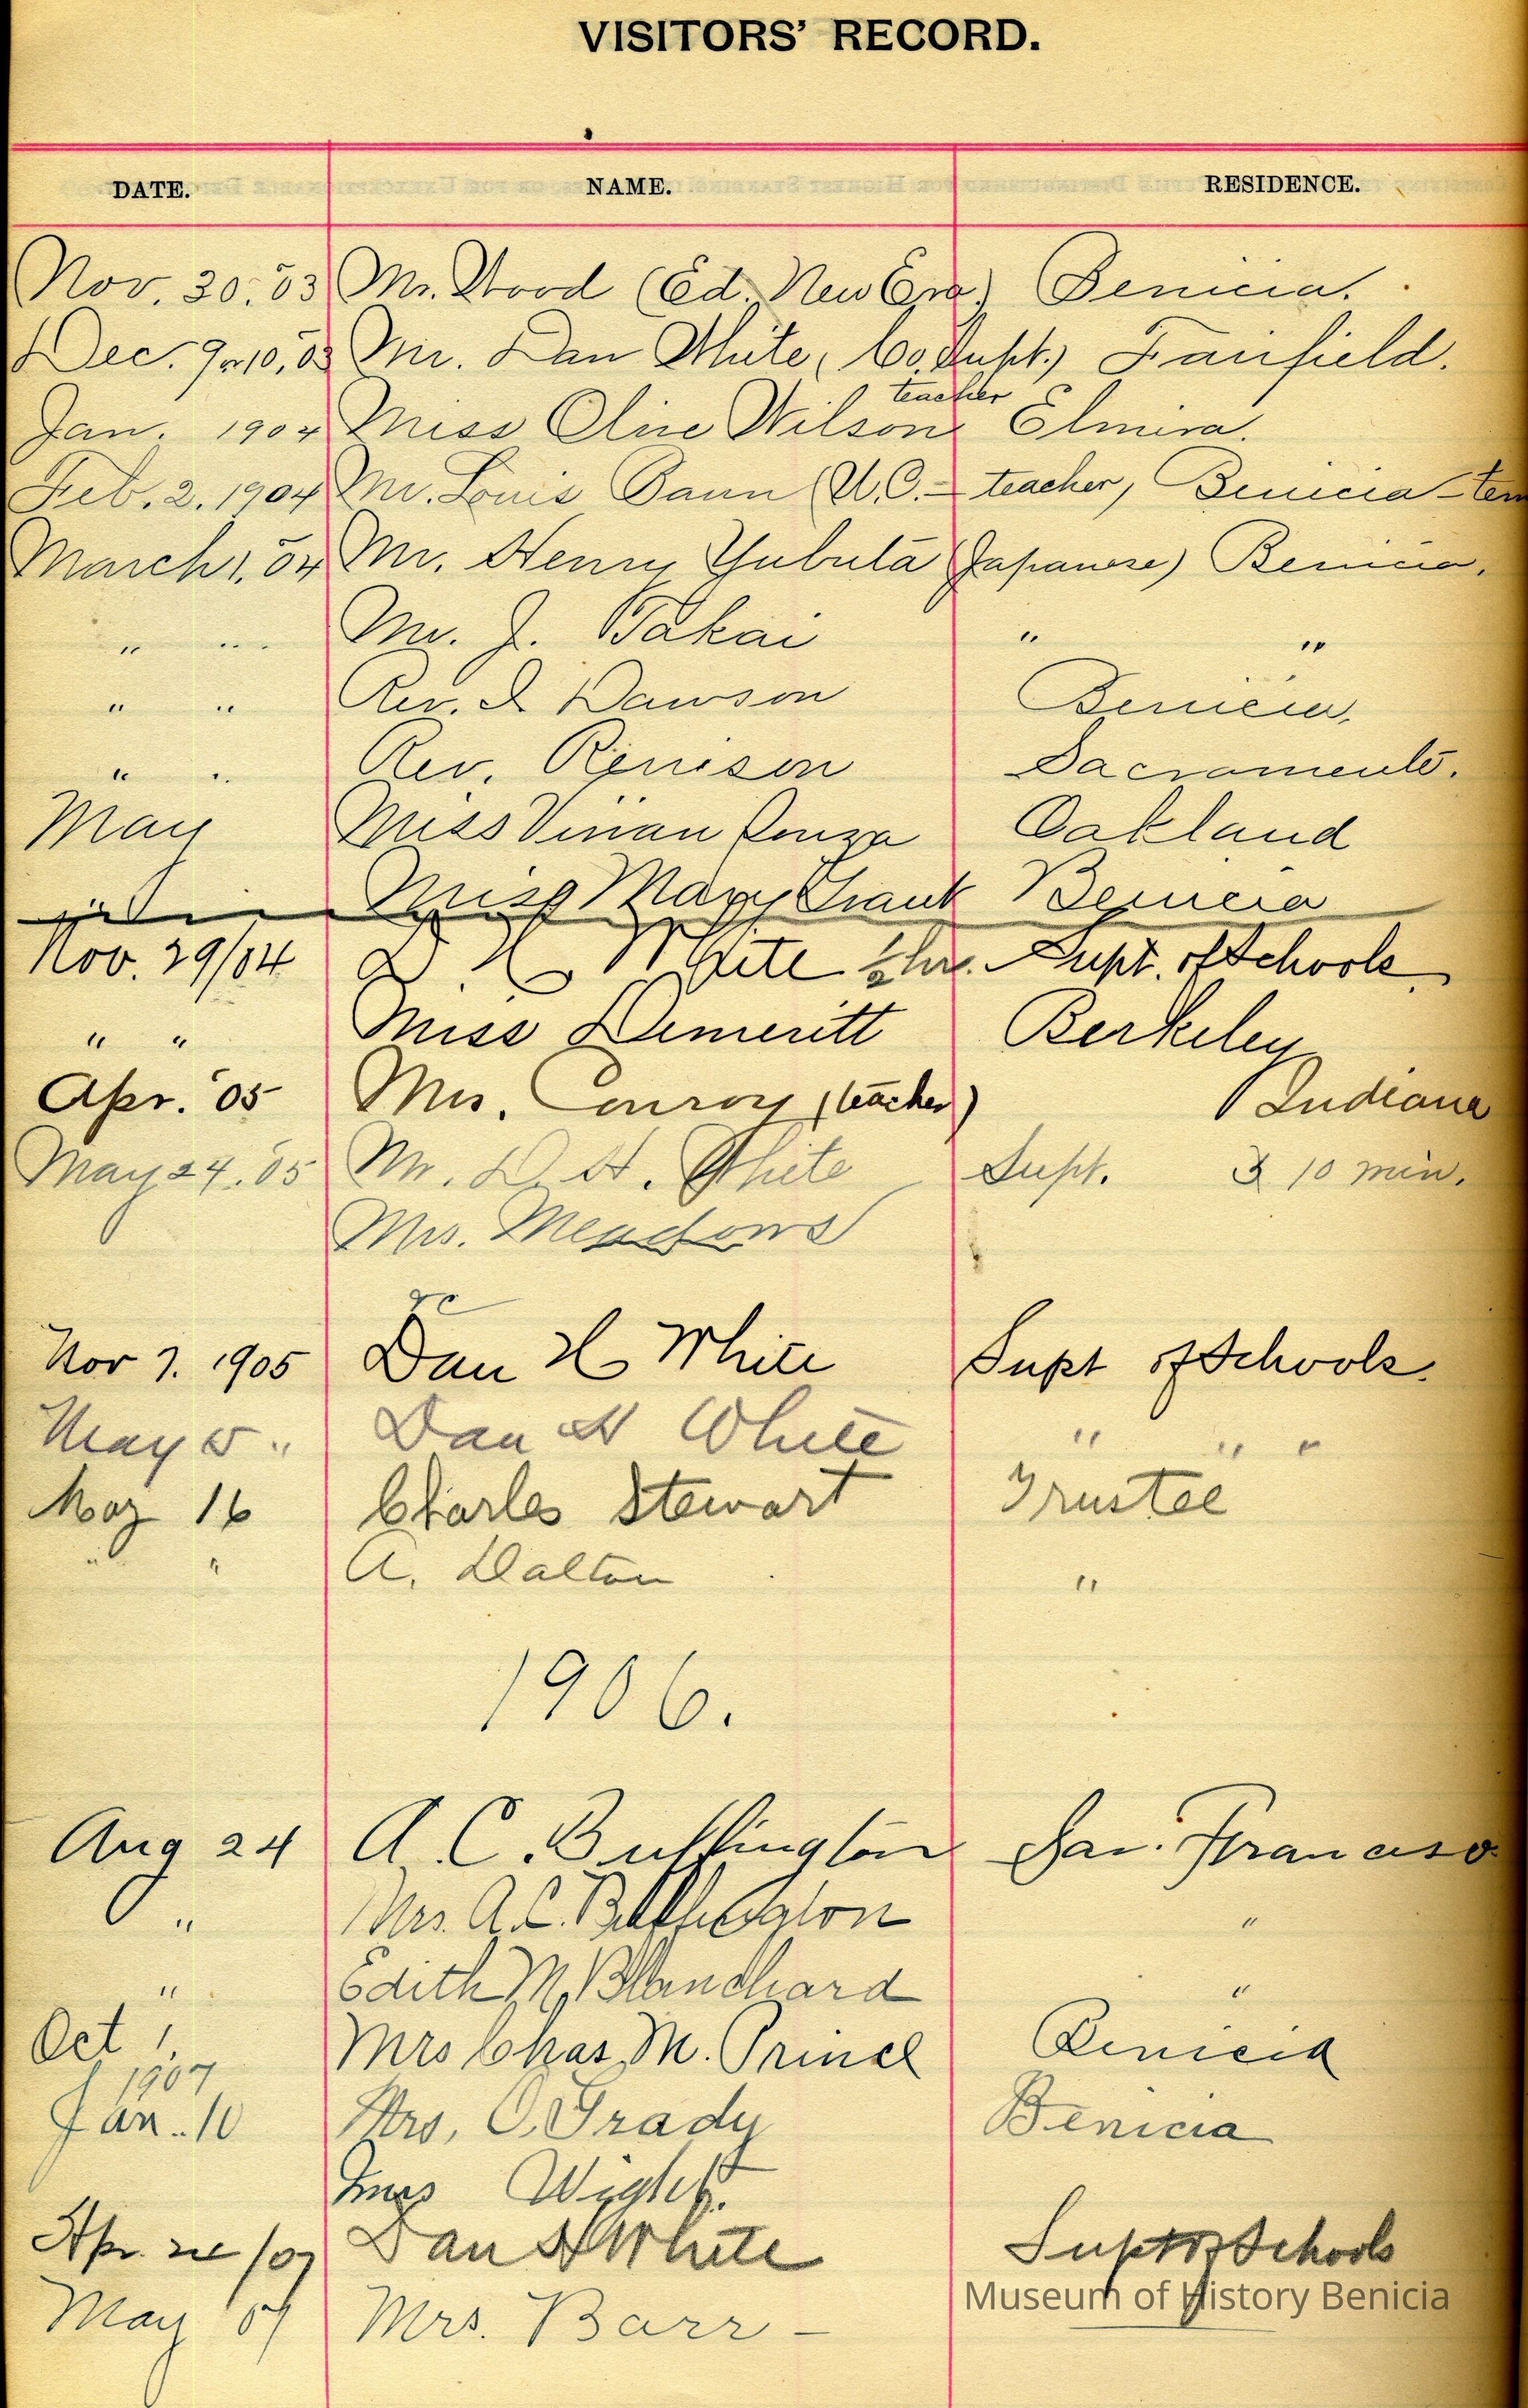 VISITORS' RECORD.
DATE. NAME. RESIDENCE.
Nov. 30. 03 Mr. Wood (Ed. New Era) Benicia.
Dec. 9 10, 03 Mr. Dan White, (Co. Supt.) Fairfield.
teacher
Jan. 1904 Miss Olive Wilson Elmira.
Feb. 2. 1904 Mr. Louis (U.C. - teacher, Benicia - tem
March 1, 04 Mr. Henry Yubuta (Japanese) Benicia.
" " Mr. J. Takai " "
" " Rev. Dawson Benicia.
" " Rev. Renison Sacramento.
May Miss Vivian Oakland
Miss Mary Benicia
Nov. 29/04 D. H. White Supt. of Schools
" " Miss Demeritt Berkeley
Apr. '05 Mrs. Conroy (teacher) Indiana
May 24. 05 Mr. D. H. White Supt. 10 min.
Mrs. Meadows
Nov 7. 1905 Dan H White Supt of Schools.
May " Dan H White " " "
May 16 Charles Stewart Trustee
" " A. Dalton "
1906.
Aug 24 A. C. Buffington San Francisco
" Mrs. A. C. Buffington "
" Edith M. Blanchard "
Oct 1, Mrs Chas. M. Prince Benicia
1907
Jan. 10 Mrs. O. Grady Benicia
Wight.
Apr. /07 Dan H White Supt of Schools
May 07 Mrs. Barr -
Museum of History Benicia